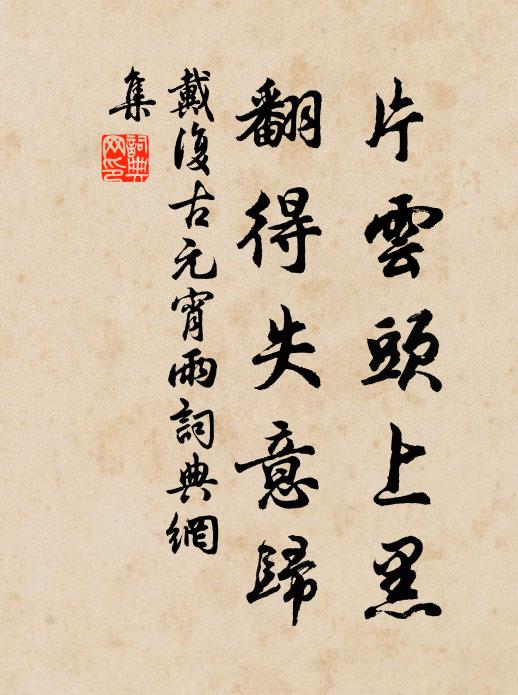 片雲頭上黑
翻得失意歸
戴復古元宵雨詞典網
集
詞典
网印